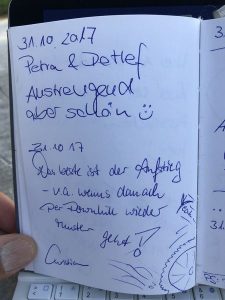 31.10 2017
Petra & Detlef
Anstrengend
aber schön
31.10 17
Das beste ist der Aufstieg
- v.a. wenns danach
per Downhill wieder
runter
geht!